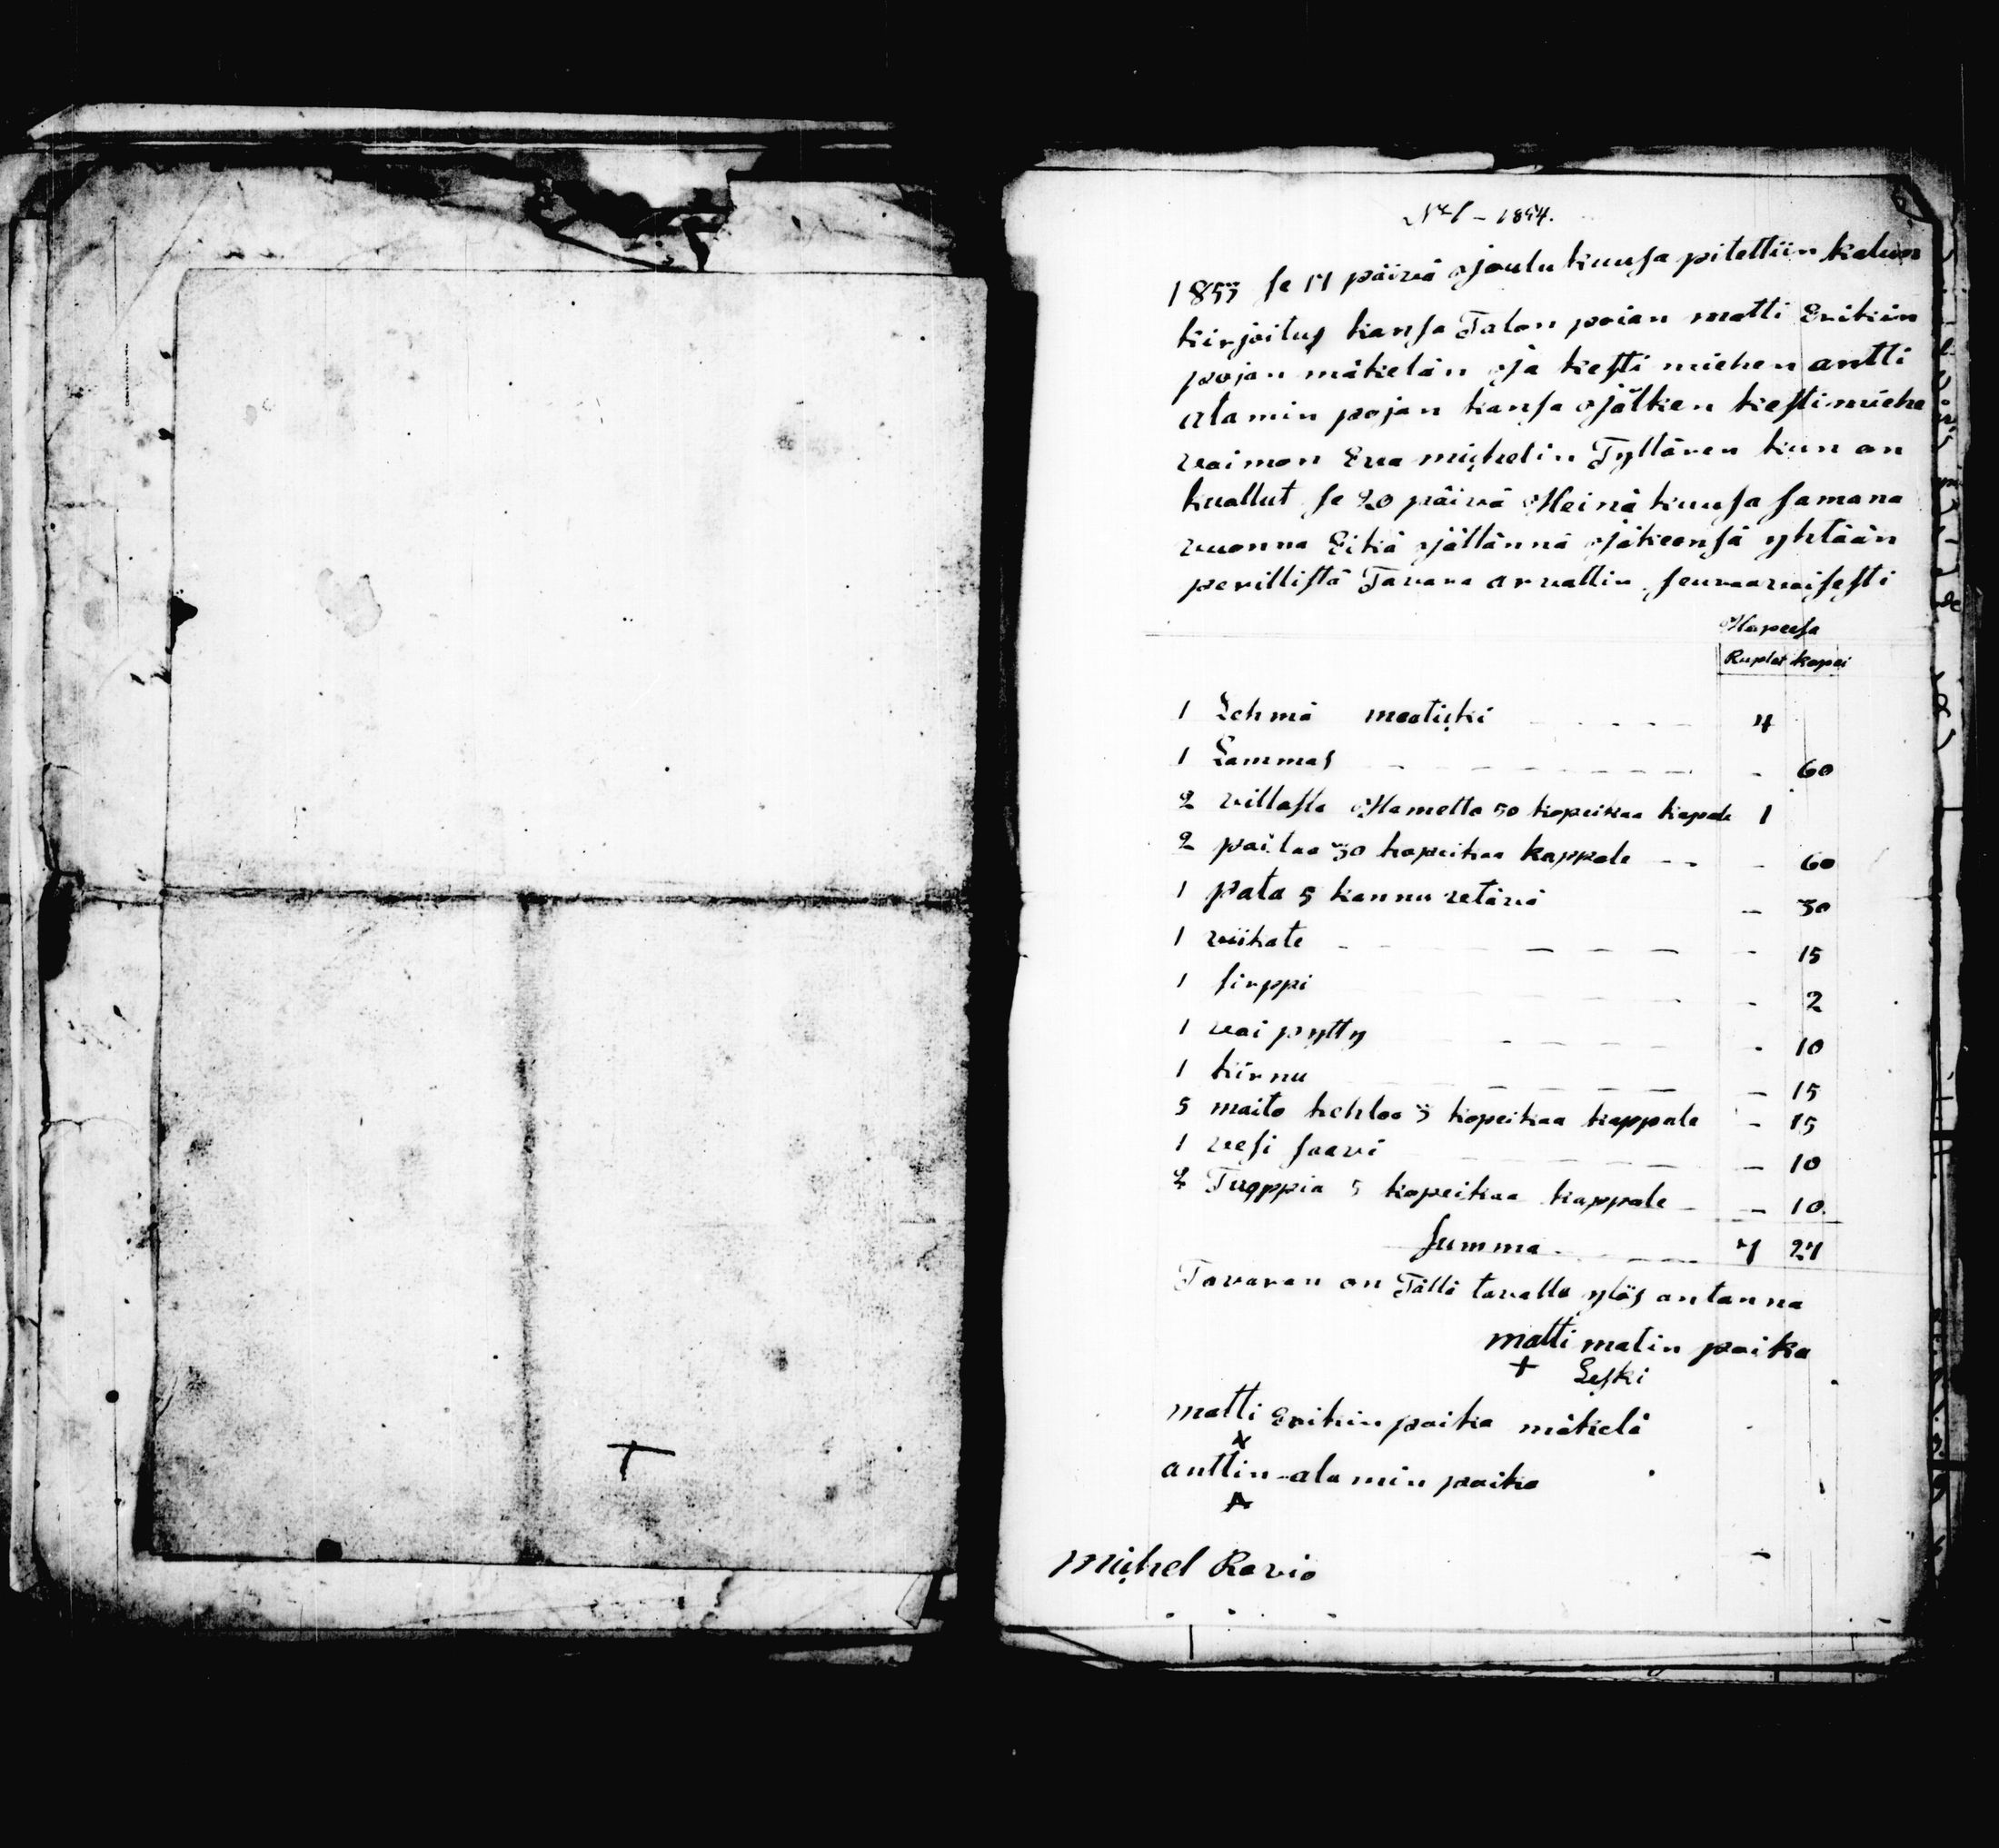 No 1 - 1854.
1853 se 17 päivä joulu kuusa pitettiin kalun
kirjoitus kansa Talon poian matti Erikin
pojan mäkelän ja kesti miehen antti
atamin pojan kansa jälken kestimiehe
vaimon Eva michelin Tyttären kun on
kuallut se 20 päivä Heinä kuusa samana
vuonna Eikä jättännä jäkeensä yhtään
perillistä Tavara arvattin seuraavaisesti
Hopeesa
Ruplat kopei
1 Lehmä 4
1 Lammas - 60
2 villasta Hametta 50 kopeikaa kapale 1
2 paitaa 30 kopeikaa kappale - 60
1 pata 5 kannu vetävä - 30
1 viikate - 15
1 sirppi - 2
1 voi pytty - 10
1 kirnu - 15
5 maito kehloa 3 kopeikaa kappale - 15
1 vesi saavi - 10
2 Tuoppia 5 kopeikaa kappale - 10.
summa 7 27
Tavaran on Tällä tavalla ylös antanna
matti matin poika
+ Leski
matti Erikin poika mäkelä
x
anttin atamin poika
michel Ravio